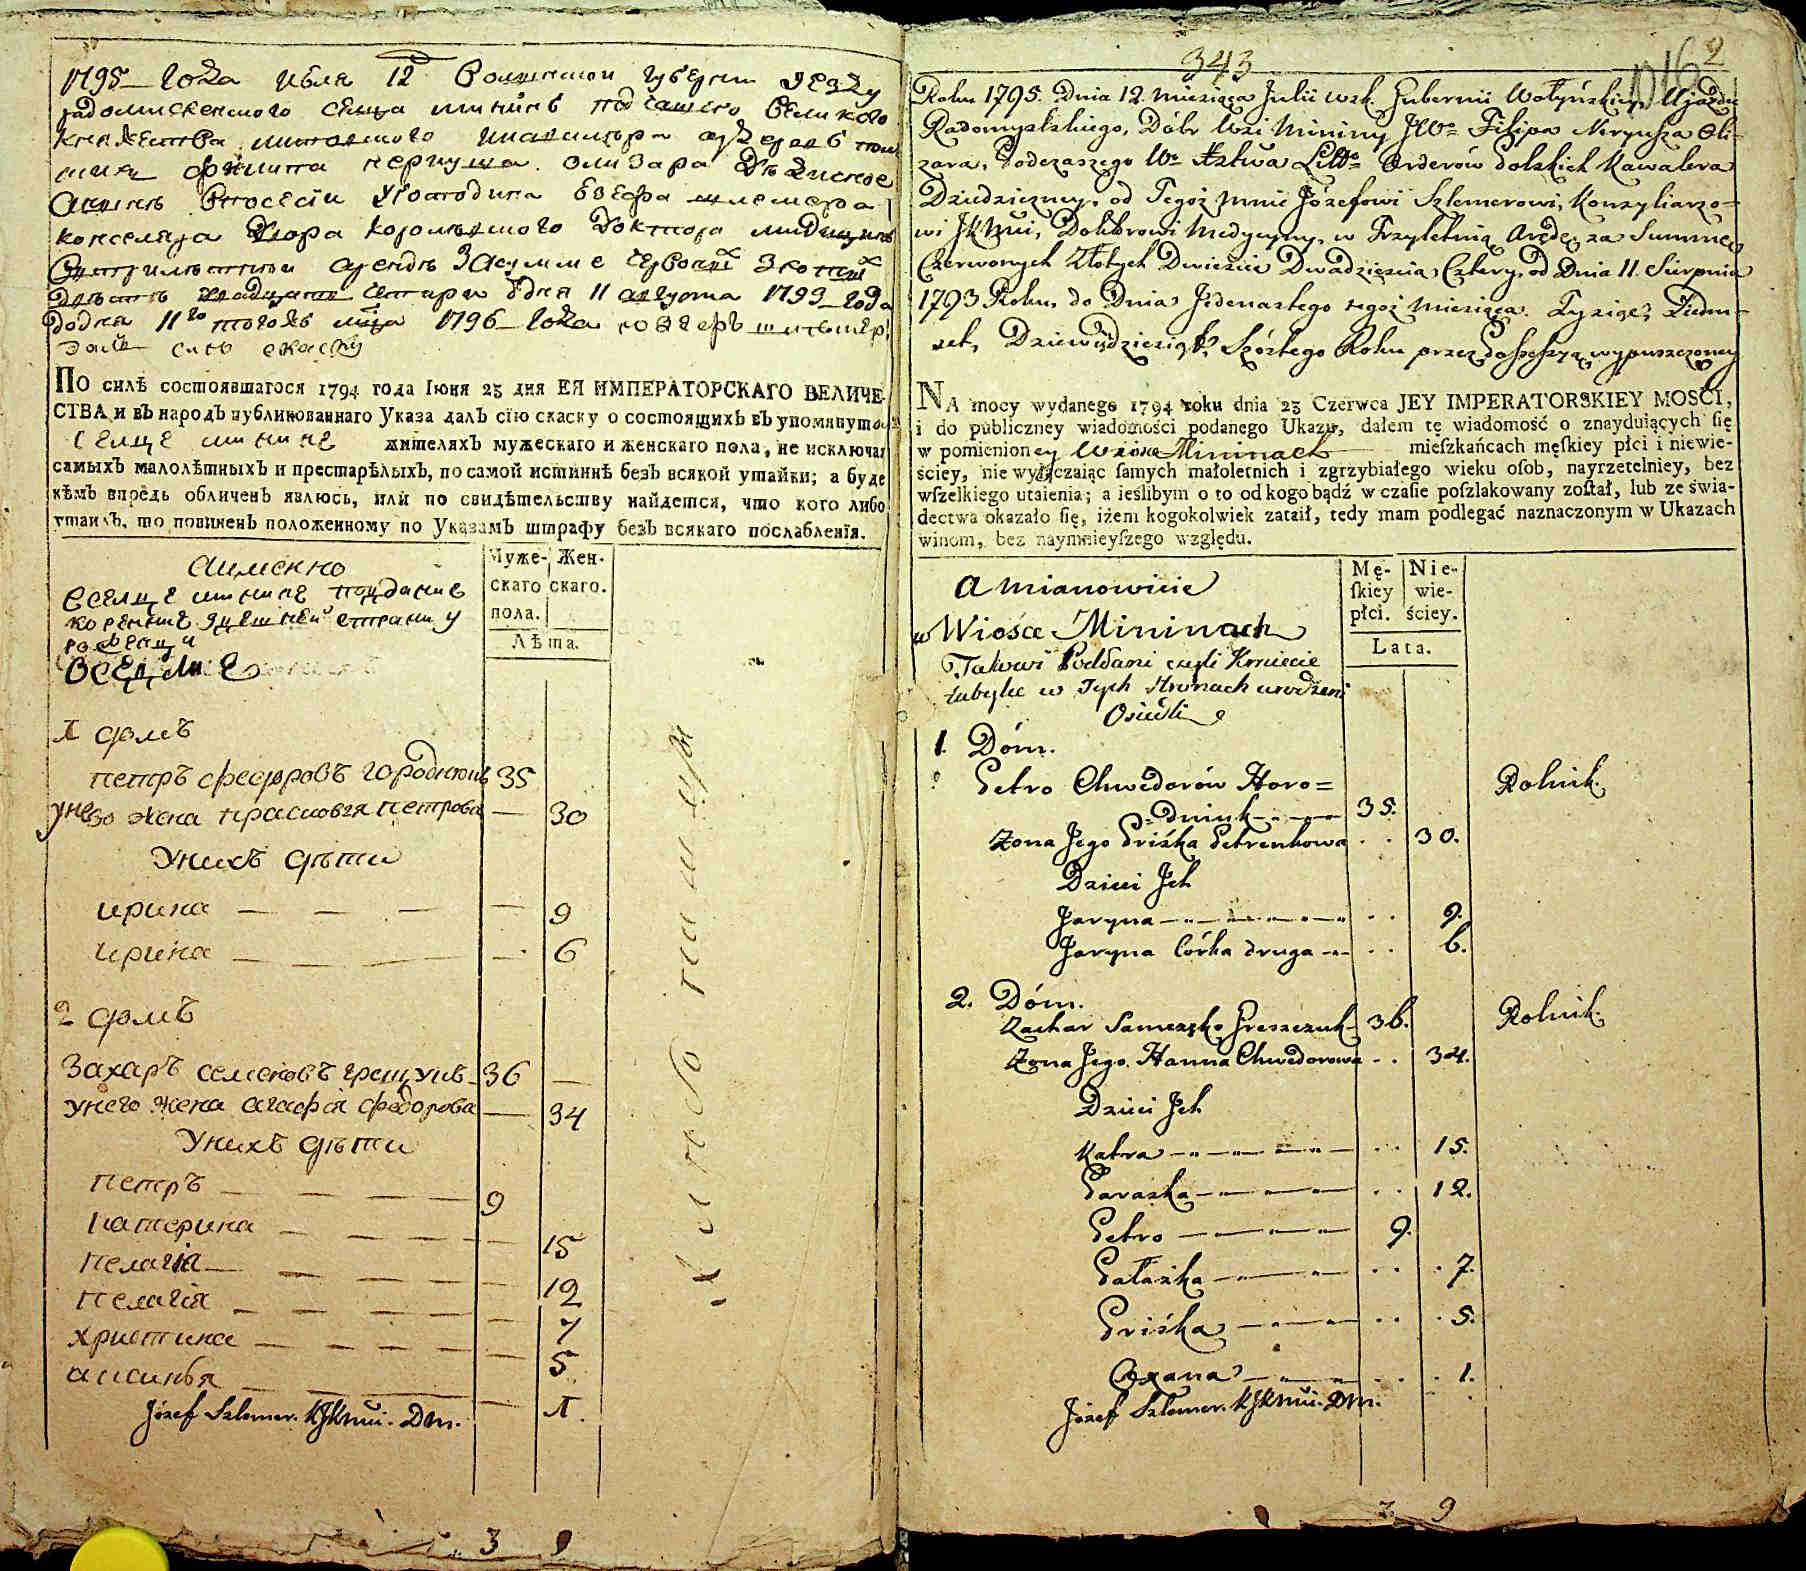 1795 года июля 12 Волынской губернии уезду
радомисленского сельца минины подчашего великого
княжества литовского
филипа нериуша олизара дедичное
консиляра двора королевского доктора медицины
арендъ за сумме червоныхъ золотыхъ
двести двадцать четыри 11 августа 1793 года
до дня 11го тогожъ мца 1796 года
далъ сию скаску
По силѣ состоявшагося 1794 года Іюня 23 дня ЕЯ ИМПЕРАТОРСКАГО ВЕЛИЧЕ-
СТВА и въ народъ публикованнаго Указа далъ сїю скаску о состоящихъ въ упомянутом
селце минине жителяхъ мужескаго и женскаго пола, не исключая
самыхъ малолѣтныхъ и престарѣлыхъ, по самой истиннѣ безъ всякой утайки; а буде
кѣмъ впредь обличенъ явлюсь, или по свидѣтельству найдется, что кого либо
утаилъ, то повиненъ положенному по Указамъ штрафу безъ всякаго послабленія.
Муже- Жен-
скаго скаго.
пола.
Лѣта.
а именно
в селце минине подданые
коренние здешней страни у
роженци
оселые
1 домъ
петръ федоровъ городнюкъ 35
у него жена прасковя петрова 30
У нихъ дѣти
ирина 9
ирина 6
2 домъ
Захаръ семеновъ грещукъ 36
у него жена агафія федорова 34
У нихъ дѣти
петръ 9
катерина 15
пелагія 12
пелагія 7
христина 5
аксинья 1.
Józef Szlemer. KJKMći. DM.
3 9
343
2
Roku 1795. Dnia 12. miesiąca Julii wsk. Gubernii Wołyńskiey, Ujazdu
Radomyslskiego, Dóbr Wsi Mininy JWo Filipa Neryusza Oli-
zara, Podczaszego Wo Xztwa Litto Orderów Polskich Kawalera
Dziedziczney, od Tegoż mnie Józefowi Szlemerowi, Konsyliarzo-
wi JKMći, Doktorowi Medycyny, w Trzyletnią Arędę za Summę
Czerwonych Złotych Dwieście Dwadzieścia Cztery, od Dnia 11. Sierpnia
1793 Roku, do Dnia Jedenastego tegoż Miesiąca. Tysiąc, Siedm-
set, Dziewięćdziesiąt, Szóstego Roku przez Possessyą wypuszczoney
NA mocy wydanego 1794 roku dnia 23 Czerwca JEY IMPERATORSKIEY MOSCI,
i do publiczney wiadomości podanego Ukazu, dałem tę wiadomość o znayduiących się
w pomienioney Wiosce Mininach mieſzkańcach męſkiey płci i niewie-
ściey, nie wyłączaiąc ſamych małoletnich i zgrzybiałego wieku oſob, nayrzetelniey, bez
wſzelkiego utaienia; a ieślibym o to od kogo bądź w czaſie poſzlakowany zoſtał, lub ze świa-
dectwa okazało ſię, iżem kogokolwiek zataił, tedy mam podlegać naznaczonym w Ukazach
winom, bez naymnieyſzego względu.
Mę- Nie-
ſkiey wie-
płci. ściey.
Lata.
A mianowicie
w Wiosce Mininach
Takowi Poddani czyli Kmiecie
tubylce w Tych Stronach urodzeni
Osiedli
1. Dóm.
Petro Chwedorów Horo=
=dniuk 35. Rolnik.
Zona Jego Priśka Petrenkowa 30.
Dzieci Jch
Jaryna 9.
Jaryna Córka druga 6.
2. Dóm.
Zachar Samczyko Greszczuk 36. Rolnik.
Zona Jego Hanna Chwedorowa 34.
Dzieci Jch
Katra 15.
Paraska 12.
Petro 9.
Pałaźka 7.
Priśka 5.
Oxana 1.
Józef Szlemer. KJKMći. DM.
3 9